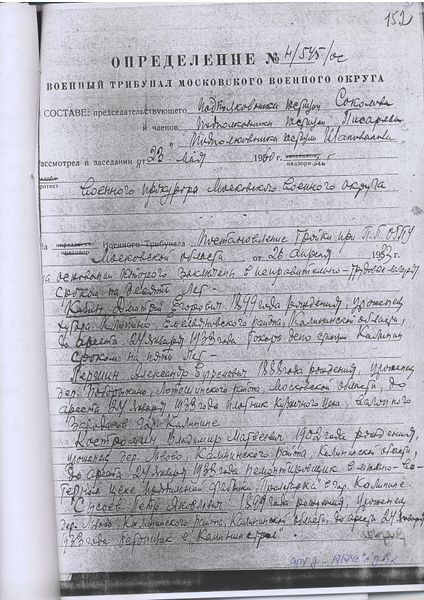 152
ОПРЕДЕЛЕНИЕ № н/545/ос
ВОЕННЫЙ ТРИБУНАЛ МОСКОВСКОГО ВОЕННОГО ОКРУГА
СОСТАВЕ: председательствующего подполковника юстиции Соколова
и членов подполковника юстиции Писарева
" подполковника юстиции
Рассмотрел в заседании от 23 мая 1960 г.
надзорн.
протест
Военного прокурора Московского военного округа
На Военного Трибунала Постановление Тройки при П.П. ОГПУ
приговор Московской области от 26 апреля 1933 г.
на основании которого заключены в исправительно-трудовой лагерь
сроком на десять лет-
Кабин Дмитрий Егорович 1899 года рождения, уроженец
района, Калининской области,
до ареста 24 января 1933 года депо станции Калинин
сроком на пять лет-
Першин Александр Ефремович 1888 года рождения, уроженец
дер. Лотошинского района, Московской области, до
ареста 24 января 1933 года плотник цеха, вагонного
гор. Калинине
Владимир Матвеевич 1902 года рождения,
уроженец дер. Львово Калининского района, Калининской области,
до ареста 24 января 1933 года ремонтировщик в
цехе фабрики "Пролетарка" в гор. Калинине.
Петр Яковлевич 1899 года рождения, уроженец
дер. Львово Калининского района, Калининской области, до ареста 24 января
1933 года в